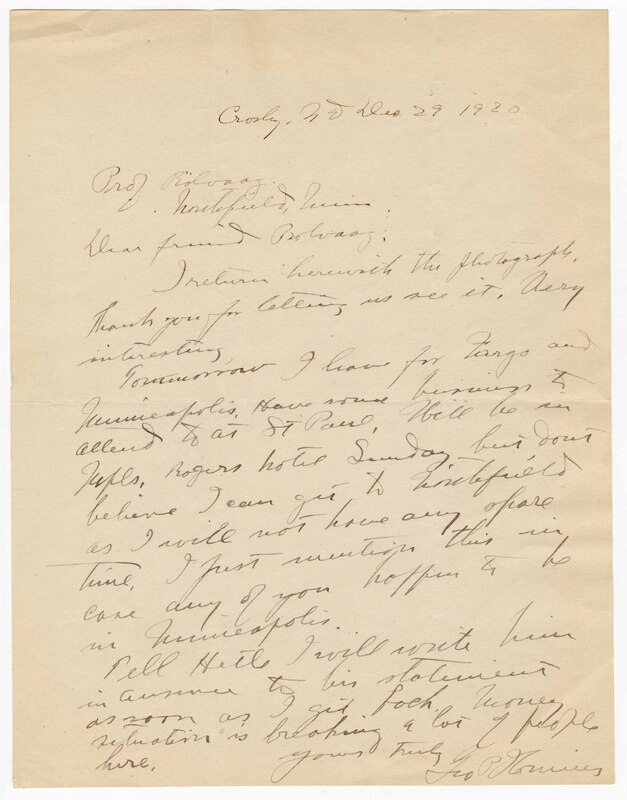 Crosby, ND Dec 29 1920
Prof Rolvaag.
Northfield, Minn.
Dear friend Rolvaag:
I return herewith the photograph.
Thank you for letting us see it. Very
interesting.
Tommorrow I leave for Fargo and
Minneapolis. Have some business to
attend to at St Paul. Will be in
Mpls. Rogers hotel Sunday but dont
believe I can get to Northfield
as I will not have any spare
time. I just mention this in
case any of you happen to be
in Minneapolis.
Tell Hetle I will write him
in answer to his statement
as soon as I get back. Money
situation is breaking a lot of people
here.
yours truly
Geo P.